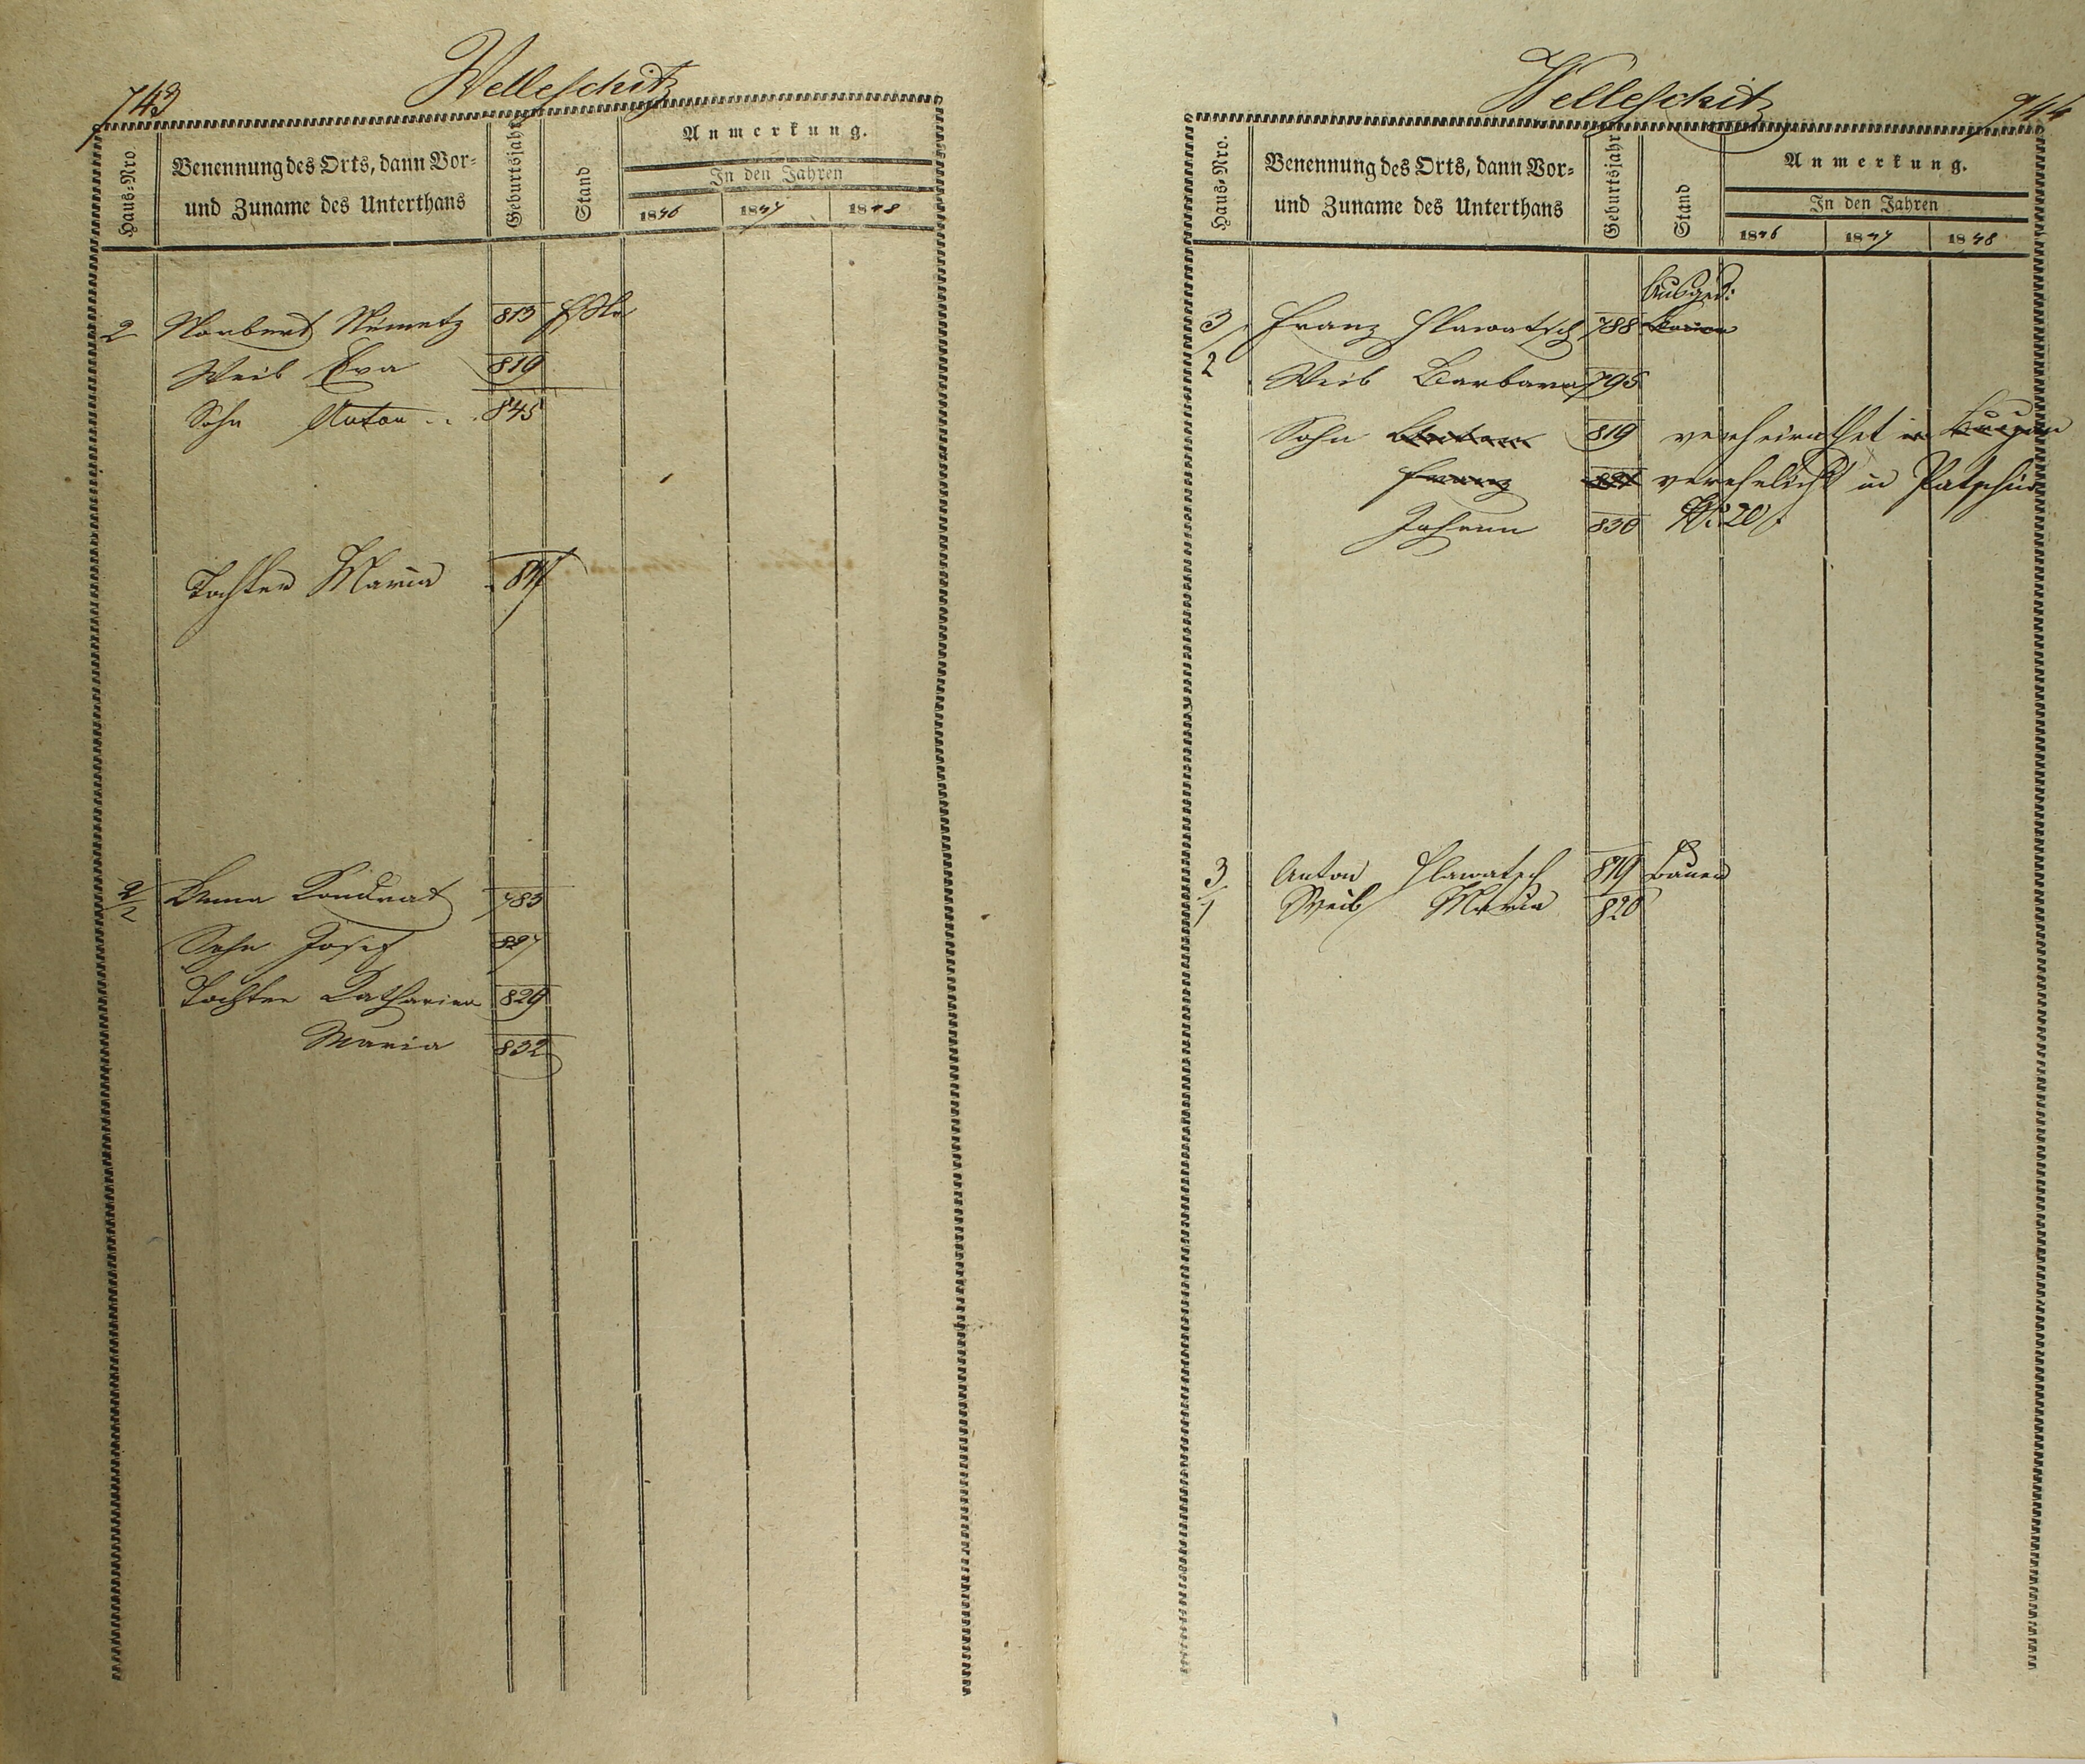 743
Welleschitz
Haus-Nro.
Benennung des Orts, dann Vor-
und Zuname des Unterthans
Geburtsjahr
Stand
Anmerkung.
In den Jahren
1846 1847 1848
2 Norbert Nemetz 813
Weib Eva 819
Sohn Anton 845
Tochter Maria 847
2/2 Anna Kondrat 783
Sohn Josef 827
Tochter Katharina 829
Maria 832
Welleschitz
744
Haus-Nro.
Benennung des Orts, dann Vor-
und Zuname des Unterthans
Geburtsjahr
Stand
Anmerkung.
In den Jahren
1846 1847 1848
Ausged:
3/2 Franz Hlawatsch 788 Bauer
Weib Barbara 795
Sohn 819 verheirathet in
Franz verehelicht in
Johann 830 N. 20
3/1 Anton Hlawatsch 819 Bauer
Weib Maria 820